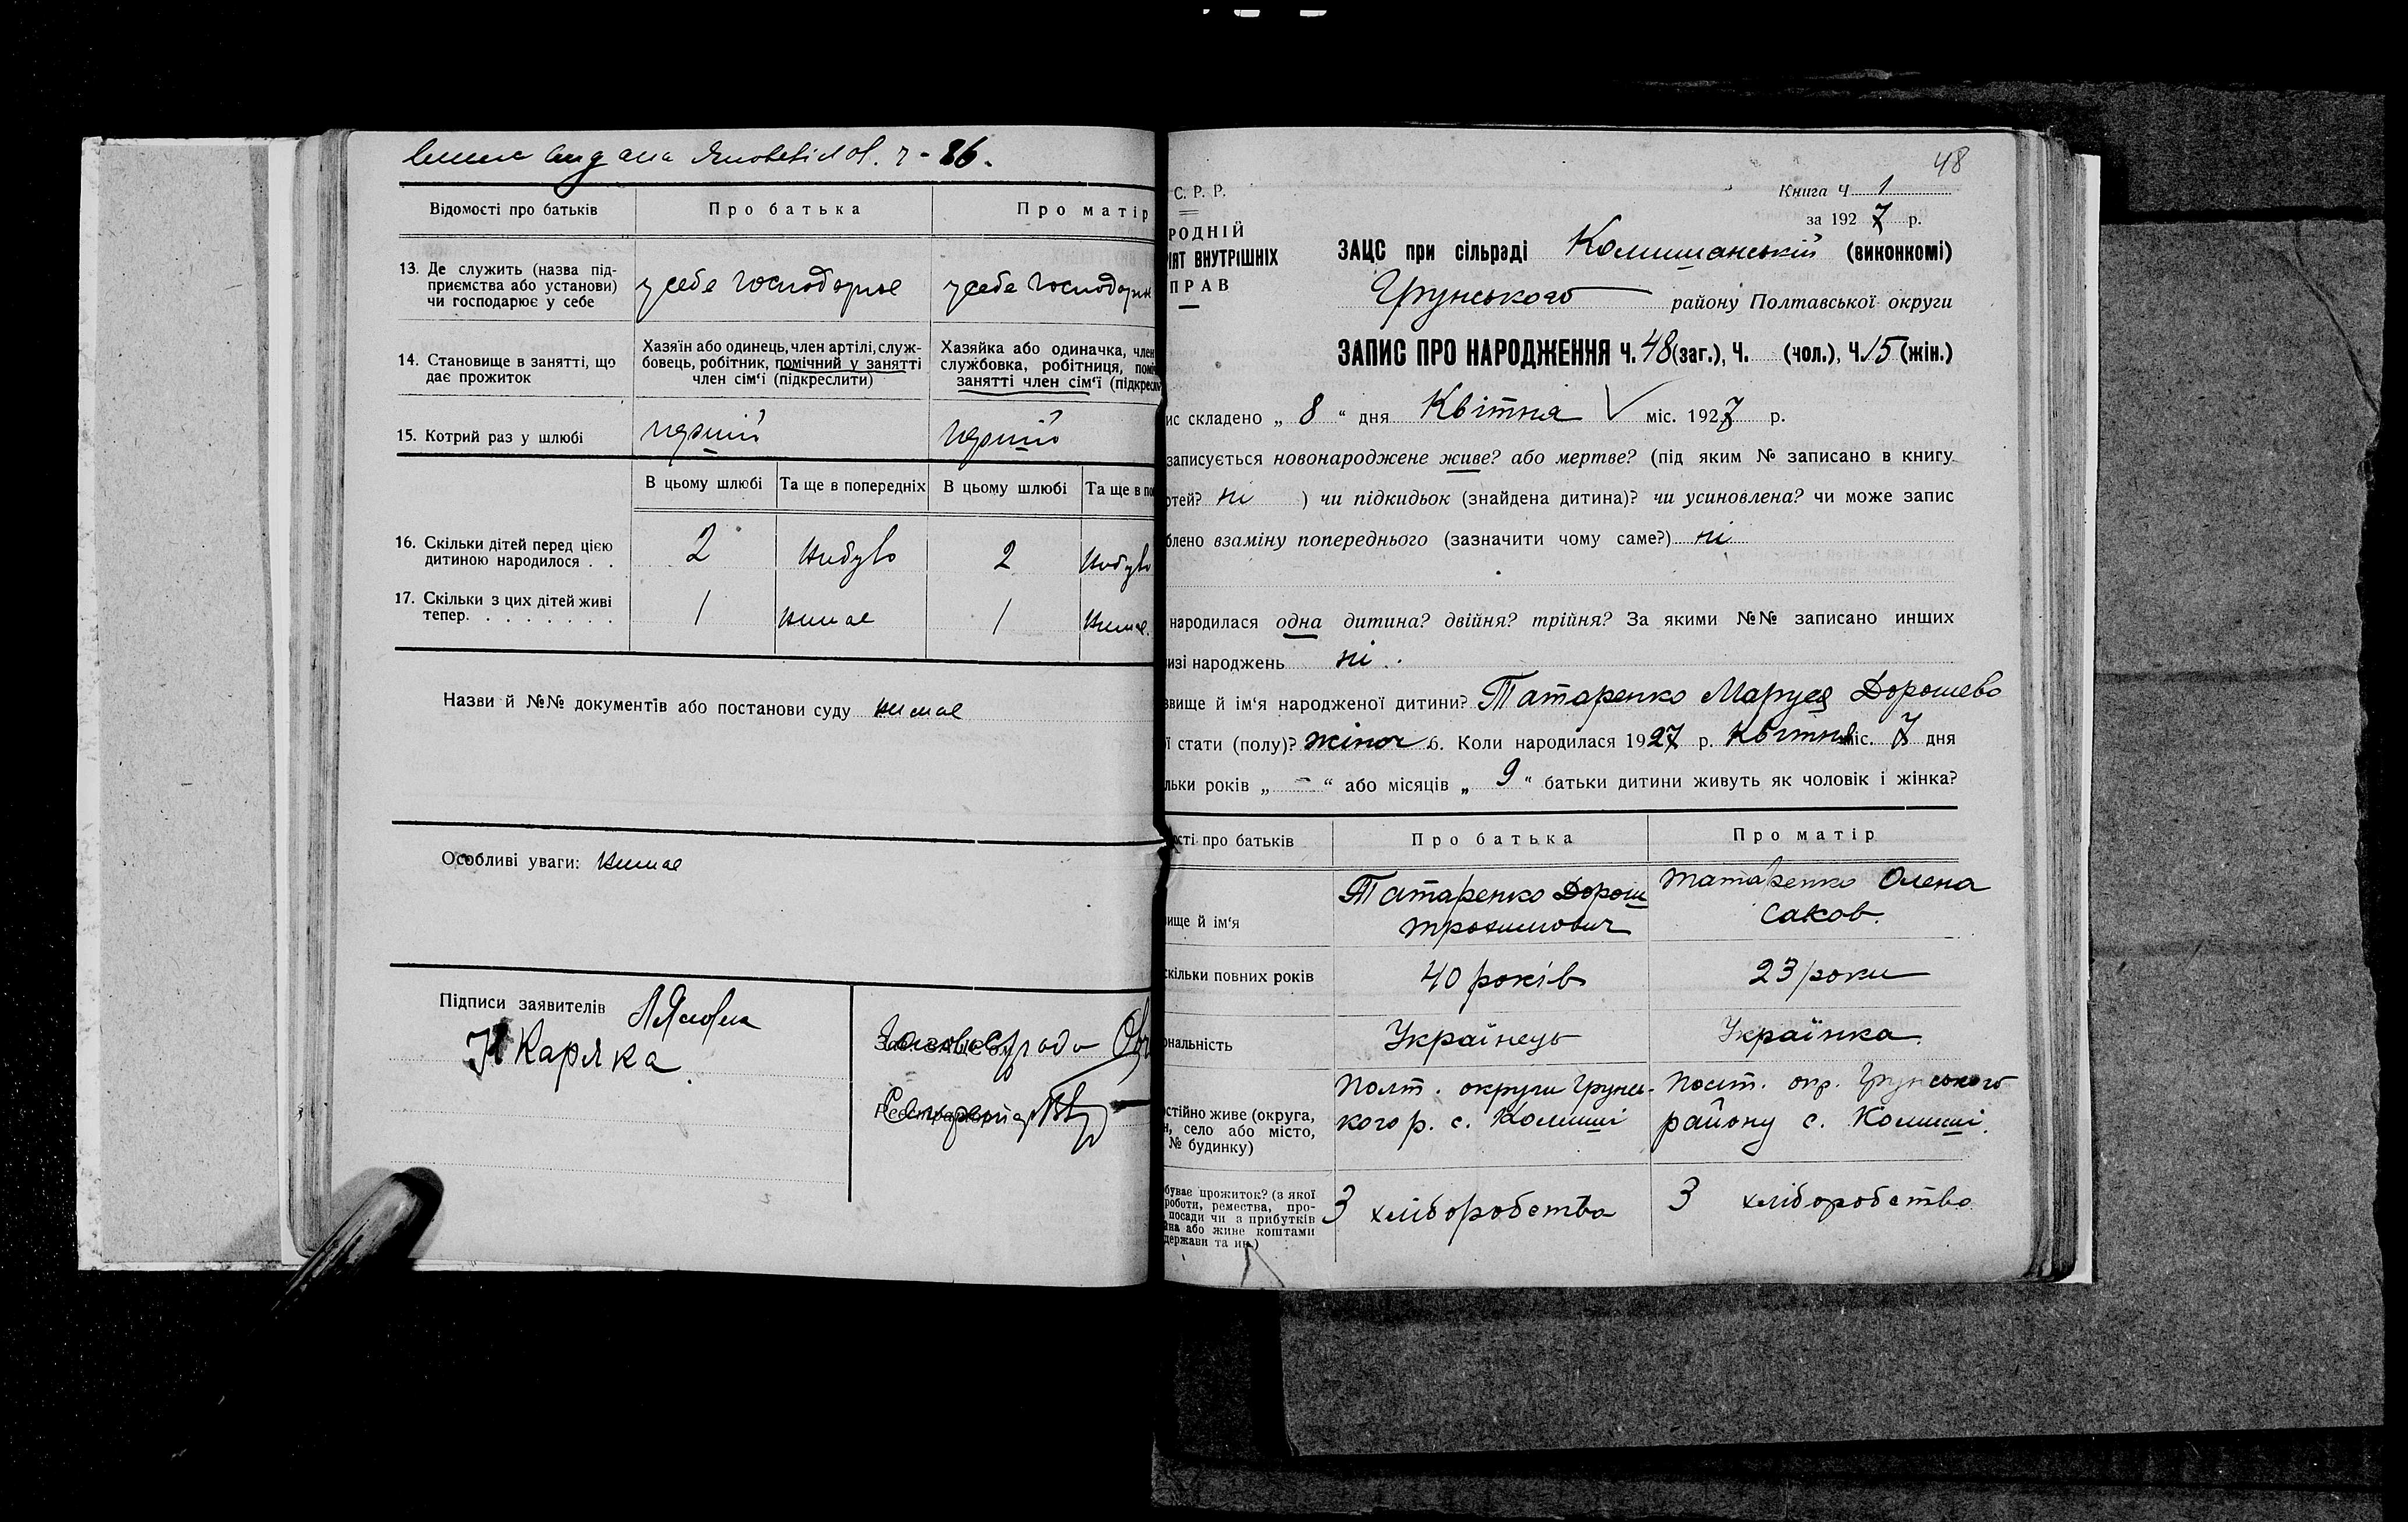 86.
Відомості про батьків
Про батька
Про матір
13. Де служить (назва під-
приємства або установи)
чи господарює у себе
у себе господарює
у себе господарює
14. Становище в занятті, що
дає прожиток
Хазяїн або одинець, член артілі, служ-
бовець, робітник, помічний у занятті
член сім'ї (підкреслити)
Хазяйка або одиначка, член
службовка, робітниця, поміч
занятті член сім'ї (підкресли
15. Котрий раз у шлюбі
перший
перший
В цьому шлюбі
Та ще в попередніх
В цьому шлюбі
Та ще в по
16. Скільки дітей перед цією
дитиною народилося . .
2
небуло
2
небуло
17. Скільки з цих дітей живі
тепер. . . . . . . .
1
немае
1
немае.
Назви й №№ документів або постанови суду немае
Особливі уваги: немае
Підписи заявителів
Н Каряка.
48
С. Р. Р.
Книга Ч 1
за 1927 р.
РОДНІЙ
ІЯТ ВНУТРІШНІХ
ПРАВ
ЗАЦС при сільраді Комишанській (виконкомі)
Грунського району Полтавської округи
ЗАПИС ПРО НАРОДЖЕННЯ Ч. 48 (заг.), Ч. (чол.), Ч. 15 (жін.)
ис складено „ 8 “ дня Квітня міс. 1927 р.
записується новонароджене живе? або мертве? (під яким № записано в книгу
ртей? ні ) чи підкидьок (знайдена дитина)? чи усиновлена? чи може запис
блено взаміну попереднього (зазначити чому саме?) ні
народилася одна дитина? двійня? трійня? За якими №№ записано инших
изі народжень ні.
звище й ім'я народженої дитини? Татаренко Маруся Дорошево
ї стати (полу)? жіноч. 6. Коли народилася 1927 р. Квітня міс. 7 дня
льки років „ - “ або місяців „ 9 “ батьки дитини живуть як чоловік і жінка?
сті про батьків
Про батька
Про матір
вище й ім'я
Татаренко Дорош
Трохимович
Татаренко Олена
Саков.
скільки повних років
40 років
23 роки
ональність
Українець
Українка.
остійно живе (округа,
н, село або місто,
№ будинку)
Полт. округи Грунсь-
кого р. с. Комиші
Полт. окр. Грунського
району с. Комиші.
обуває прожиток? (з якої
роботи, ремества, про-
посади чи з прибутків
йна або живе коштами
держави та ин.)
З хліборобства
З хліборобства